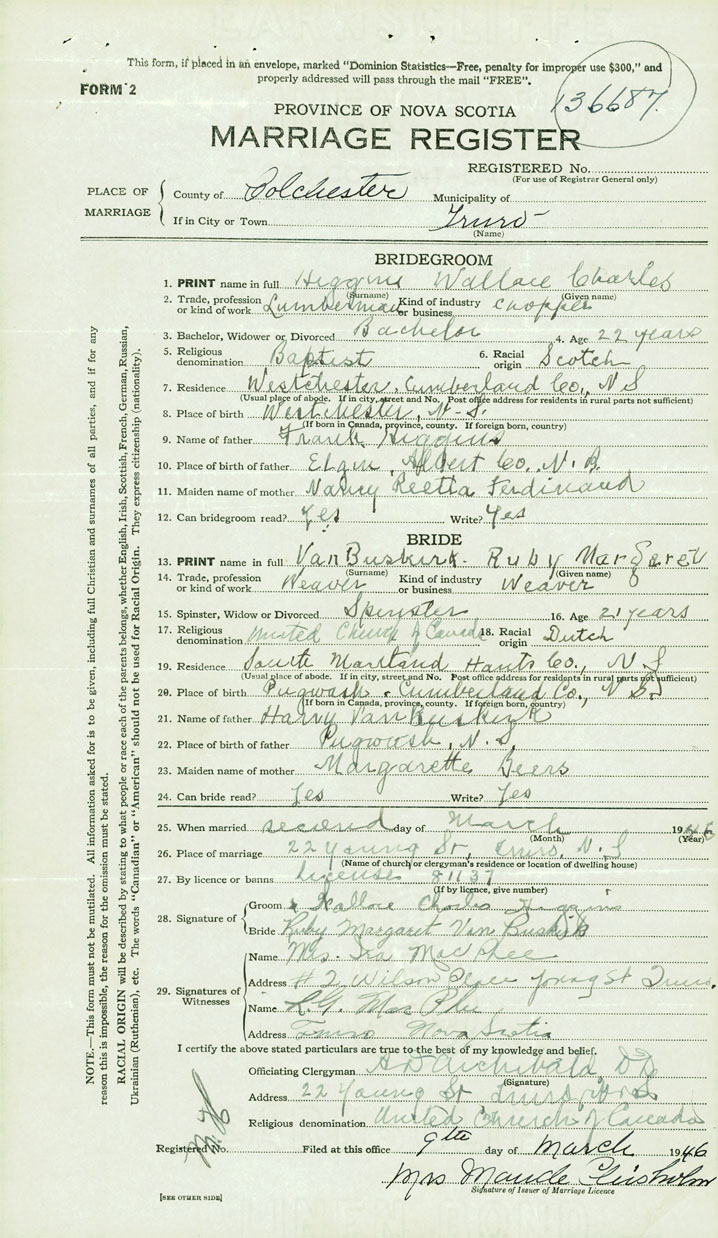 This form, if placed in an envelope, marked "Dominion Statistics—Free, penalty for improper use $300," and
properly addressed will pass through the mail "FREE".
FORM 2
136687
PROVINCE OF NOVA SCOTIA
MARRIAGE REGISTER
REGISTERED No.
(For use of Registrar General only)
PLACE OF MARRIAGE
County of Colchester Municipality of
If in City or Town Truro
(Name)
BRIDEGROOM
1. PRINT name in full Higgins Wallace Charles
(Surname) (Given name)
2. Trade, profession or kind of work Lumberman Kind of industry or business chopper
3. Bachelor, Widower or Divorced Bachelor 4. Age 22 years
5. Religious denomination Baptist 6. Racial origin Scotch
7. Residence Westchester, Cumberland Co., N S
(Usual place of abode. If in city, street and No. Post office address for residents in rural parts not sufficient)
8. Place of birth Westchester, N.S.
(If born in Canada, province, county. If foreign born, country)
9. Name of father Frank Higgins
10. Place of birth of father Elgin, Albert Co., N.B.
11. Maiden name of mother Nancy Ferdinand
12. Can bridegroom read? Yes Write? Yes
BRIDE
13. PRINT name in full Van Buskirk. Ruby Margaret
(Surname) (Given name)
14. Trade, profession or kind of work Weaver Kind of industry or business Weaver
15. Spinster, Widow or Divorced Spinster 16. Age 21 years
17. Religious denomination United Church of Canada 18. Racial origin Dutch
19. Residence South Maitland Hants Co., N S
(Usual place of abode. If in city, street and No. Post office address for residents in rural parts not sufficient)
20. Place of birth Pugwash. Cumberland Co., N S
(If born in Canada, province, county. If foreign born, country)
21. Name of father Harry Van Buskirk
22. Place of birth of father Pugwash, N.S.
23. Maiden name of mother Margarette Beers
24. Can bride read? Yes Write? Yes
25. When married second day of March 1946
(Month) (Year)
26. Place of marriage 22 Young St., Truro, N.S
(Name of church or clergyman's residence or location of dwelling house)
27. By licence or banns License 81137
(If by licence, give number)
28. Signature of
Groom Wallace Charles Higgins
Bride Ruby Margaret Van Buskirk
29. Signatures of Witnesses
Name Mrs. MacPhee
Address # 2 Wilson Place Young St Truro.
Name MacPhee
Address Truro Nova Scotia
I certify the above stated particulars are true to the best of my knowledge and belief.
Officiating Clergyman Archibald
(Signature)
Address 22 Young St Truro, N.S.
Religious denomination United Church of Canada
Registered No. Filed at this office 9th day of March 1946
Mrs Maude Chisholm
Signature of Issuer of Marriage Licence
[SEE OTHER SIDE]
NOTE.—This form must not be mutilated. All information asked for is to be given, including full Christian and surnames of all parties, and if for any
reason this is impossible, the reason for the omission must be stated.
RACIAL ORIGIN will be described by stating to what people or race each of the parents belongs, whether English, Irish, Scottish, French, German, Russian,
Ukrainian (Ruthenian), etc. The words "Canadian" or "American" should not be used for Racial Origin. They express citizenship (nationality).